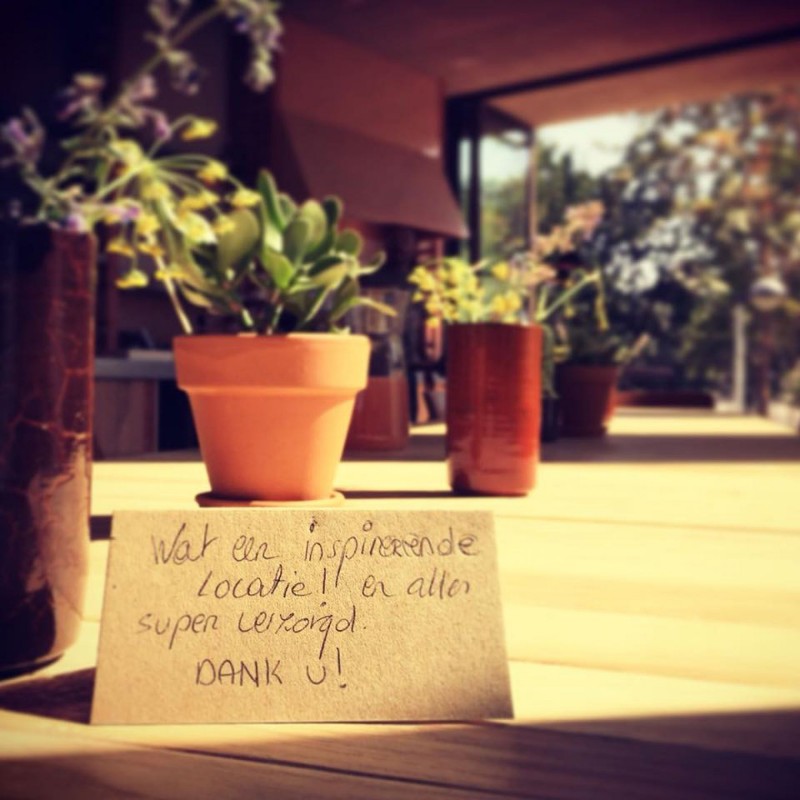 Wat een inspirerende
Locatie!! en alles
super verzorgd.
DANK U!